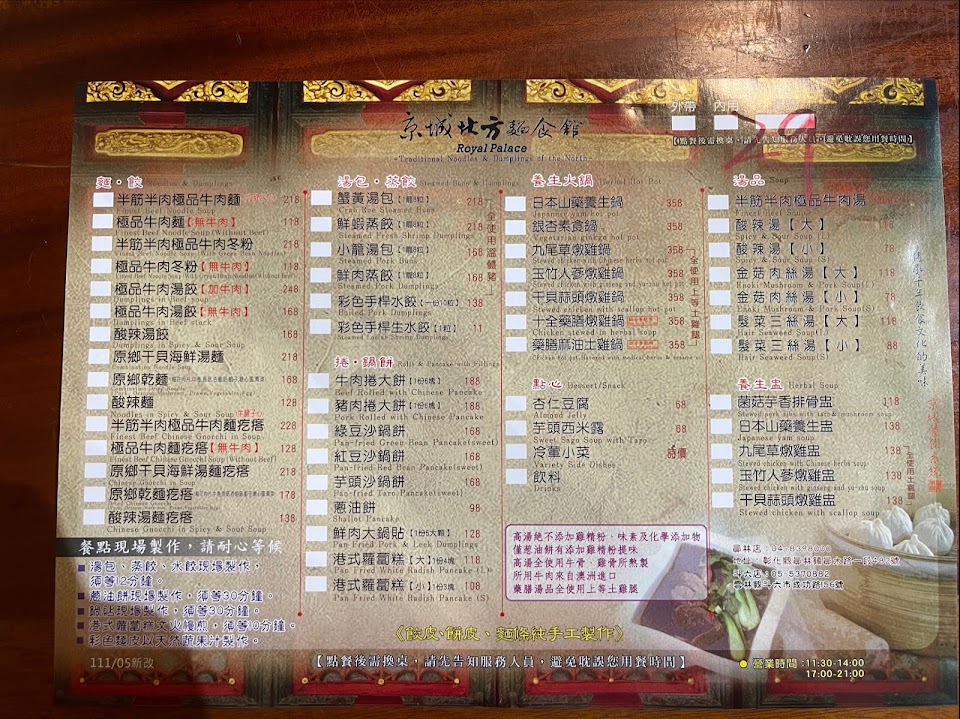 外帶 內用
29
京城北方麵食館
Royal Palace
Traditional Noodles & Dumplings of the North
【點餐後需換桌，請先告知服務人員，避免耽誤您用餐時間】
麵・餃 Noodles & Dumplings
半筋半肉極品牛肉麵 218
Finest Beef Noodle Soup
極品牛肉麵【無牛肉】 118
Finest Beef Noodle Soup (Without Beef)
半筋半肉極品牛肉冬粉 218
極品牛肉冬粉【無牛肉】 118
極品牛肉湯餃【加牛肉】 248
Dumplings in Beef soup
極品牛肉湯餃【無牛肉】 168
Dumplings in Beef stock
酸辣湯餃 168
Dumplings in Spicy & Sour Soup
原鄉干貝海鮮湯麵 218
Combination Noodle Soup
原鄉乾麵 168
酸辣麵 128
Noodles in Spicy & Sour Soup
半筋半肉極品牛肉麵疙瘩 228
Finest Beef Chinese Gnocchi in Soup
極品牛肉麵疙瘩【無牛肉】 128
Finest Beef Chinese Gnocchi Soup (Without Beef)
原鄉干貝海鮮湯麵疙瘩 218
Combination Chinese Gnocchi in Soup
原鄉乾麵疙瘩 178
酸辣湯麵疙瘩 138
Chinese Gnocchi in Spicy & Sour Soup
餐點現場製作，請耐心等候
■湯包、蒸餃、水餃現場製作，
須等12分鐘。
■蔥油餅現場製作，須等30分鐘。
■鍋貼現場製作，須等30分鐘。
■港式蘿蔔糕文火慢煎，須等10分鐘。
■彩色麵皮以天然蔬果汁製作。
111/05新改
湯包・蒸餃 Steamed Buns & Dumplings
蟹黃湯包【1籠8粒】 218
Crab Roe Steamed Buns
鮮蝦蒸餃【1籠8粒】 218
Steamed Fresh Shrimp Dumplings
小龍湯包【1籠8粒】 168
Steamed Pork Buns
鮮肉蒸餃【1籠8粒】 168
Steamed Pork Dumplings
彩色手桿水餃【一份10粒】 138
Boiled Pork Dumplings
彩色手桿生水餃【1粒】 11
全使用溫體豬
捲・鍋餅 Rolls & Pancake with Fillings
牛肉捲大餅【1份6塊】 188
Beef Rolled with Chinese Pancake
豬肉捲大餅【1份6塊】 168
Pork Rolled with Chinese Pancake
綠豆沙鍋餅 168
Pan-fried Green-Bean Pancake(sweet)
紅豆沙鍋餅 168
Pan-fried Red-Bean Pancake(sweet)
芋頭沙鍋餅 168
Pan-fried Taro Pancake(sweet)
蔥油餅 98
Shallot Pancake
鮮肉大鍋貼【1份5大顆】 128
Pan Fried Pork & Leek Dumplings
港式蘿蔔糕【大】1份5塊 138
Pan Fried White Radish Pancake (L)
港式蘿蔔糕【小】1份3塊 108
Pan Fried White Radish Pancake (S)
養生火鍋 Herbal Hot Pot
日本山藥養生鍋 358
Japanese yam hot pot
銀杏素食鍋 358
Vegetarian ginkgo hot pot
九尾草燉雞鍋 358
玉竹人蔘燉雞鍋 358
干貝蒜頭燉雞鍋 358
十全藥膳燉雞鍋 358
Stewed chicken in herbal soup
藥膳麻油土雞鍋 358
全使用上等土雞腿
點心 Dessert/Snack
杏仁豆腐 68
Almond Jelly
芋頭西米露 68
冷葷小菜 時價
Variety Side Dishes
飲料
Drinks
高湯絕不添加雞精粉、味素及化學添加物
僅蔥油餅有添加雞精粉提味
高湯全使用牛骨、雞骨所熬製
所用牛肉來自澳洲進口
藥膳湯品全使用上等土雞腿
《餃皮、餅皮、麵條純手工製作》
【點餐後需換桌，請先告知服務人員，避免耽誤您用餐時間】
湯品 Soup
半筋半肉極品牛肉湯
Finest Beef Soup
酸辣湯【大】 116
Spicy & Sour Soup(L)
酸辣湯【小】 78
Spicy & Sour Soup(S)
金菇肉絲湯【大】 118
Enoki Mushroom & Pork Soup(L)
金菇肉絲湯【小】 78
Enoki Mushroom & Pork Soup(S)
髮菜三絲湯【大】 116
Hair Seaweed Soup(L)
髮菜三絲湯【小】 88
Hair Seaweed Soup(S)
養生盅 Herbal Soup
菌菇芋香排骨盅 118
日本山藥養生盅 118
Japanese yam soup
九尾草燉雞盅 138
Stewed chicken with Chinese herbs soup
玉竹人蔘燉雞盅 138
干貝蒜頭燉雞盅 138
Stewed chicken with scallop soup
全使用土雞腿
員林店：04-8398000
斗六店：05-5370882
●營業時間：11:30-14:00
17:00-21:00